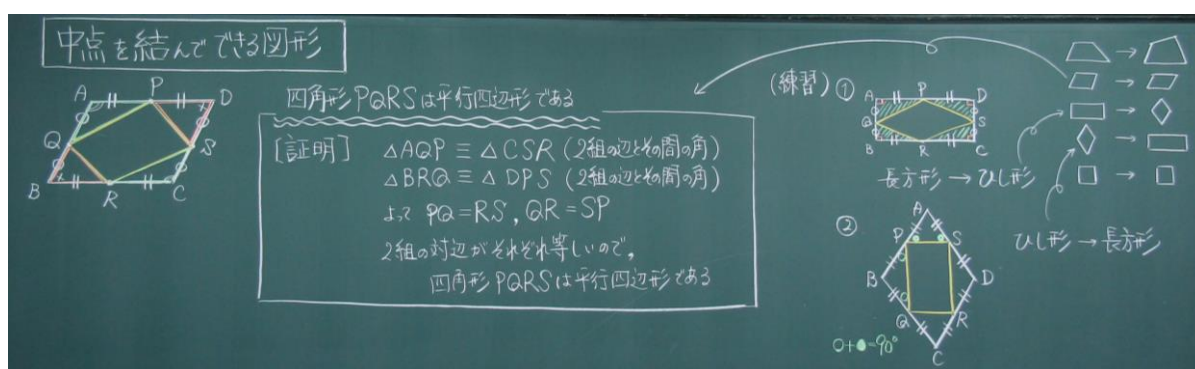 中点を結んでできる図形
A P D
Q S
B R C
四角形PQRSは平行四辺形である
[証明] △AQP≡△CSR (2組の辺とその間の角)
△BRQ≡△DPS (2組の辺とその間の角)
よって PQ=RS, QR=SP
2組の対辺がそれぞれ等しいので,
四角形PQRSは平行四辺形である
(練習) ①
A P D
Q S
B R C
長方形→ひし形
②
A
P S
B D
Q R
C
○+●=90°
→
→
→
→
→
ひし形→長方形